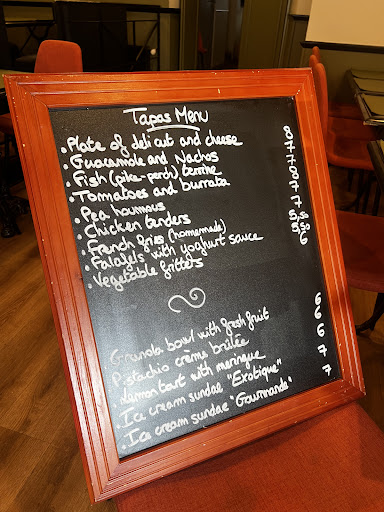 Tapas Menu
. Plate of deli cut and cheese 8
. Guacamole and Nachos 7
. Fish (pike-perch) terrine 7
. Tomatoes and burrata 8
. Pea houmous 7
. Chicken tenders 7
. French fries (homemade) 5,50
. Falafels with yoghurt sauce
. Vegetable fritters 6
. Granola bowl with fresh fruit 6
. Pistachio crème brûlée 6
. Lemon tart with meringue 6
. Ice cream sundae "Exotique" 7
. Ice cream sundae "Gourmande" 7